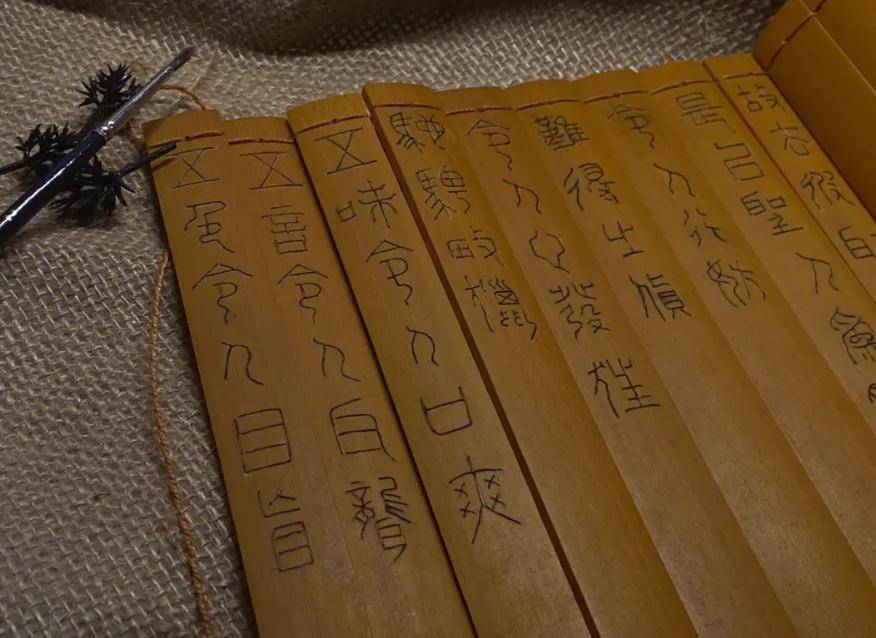 五色令人目盲
五音令人耳聾
五味令人口爽
馳騁畋獵
令人心發狂
難得之貨
令人行妨
是以聖人為
故去彼